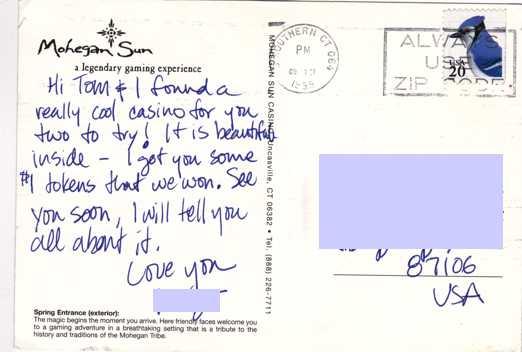 Mohegan Sun
a legendary gaming experience
Hi Tom & I found a
really cool casino for you
two to try! It is beautiful
inside - I got you some
$1 tokens that we won. See
you soon, I will tell you
all about it.
Love you
Spring Entrance (exterior):
The magic begins the moment you arrive. Here friendly faces welcome you
to a gaming adventure in a breathtaking setting that is a tribute to the
history and traditions of the Mohegan Tribe.
MOHEGAN SUN CASINO, Uncasville, CT 06382 • Tel. (888) 226-7711
SOUTHERN CT 064
PM
ALWAYS
USE
ZIP CODE
USA
20
87106
USA